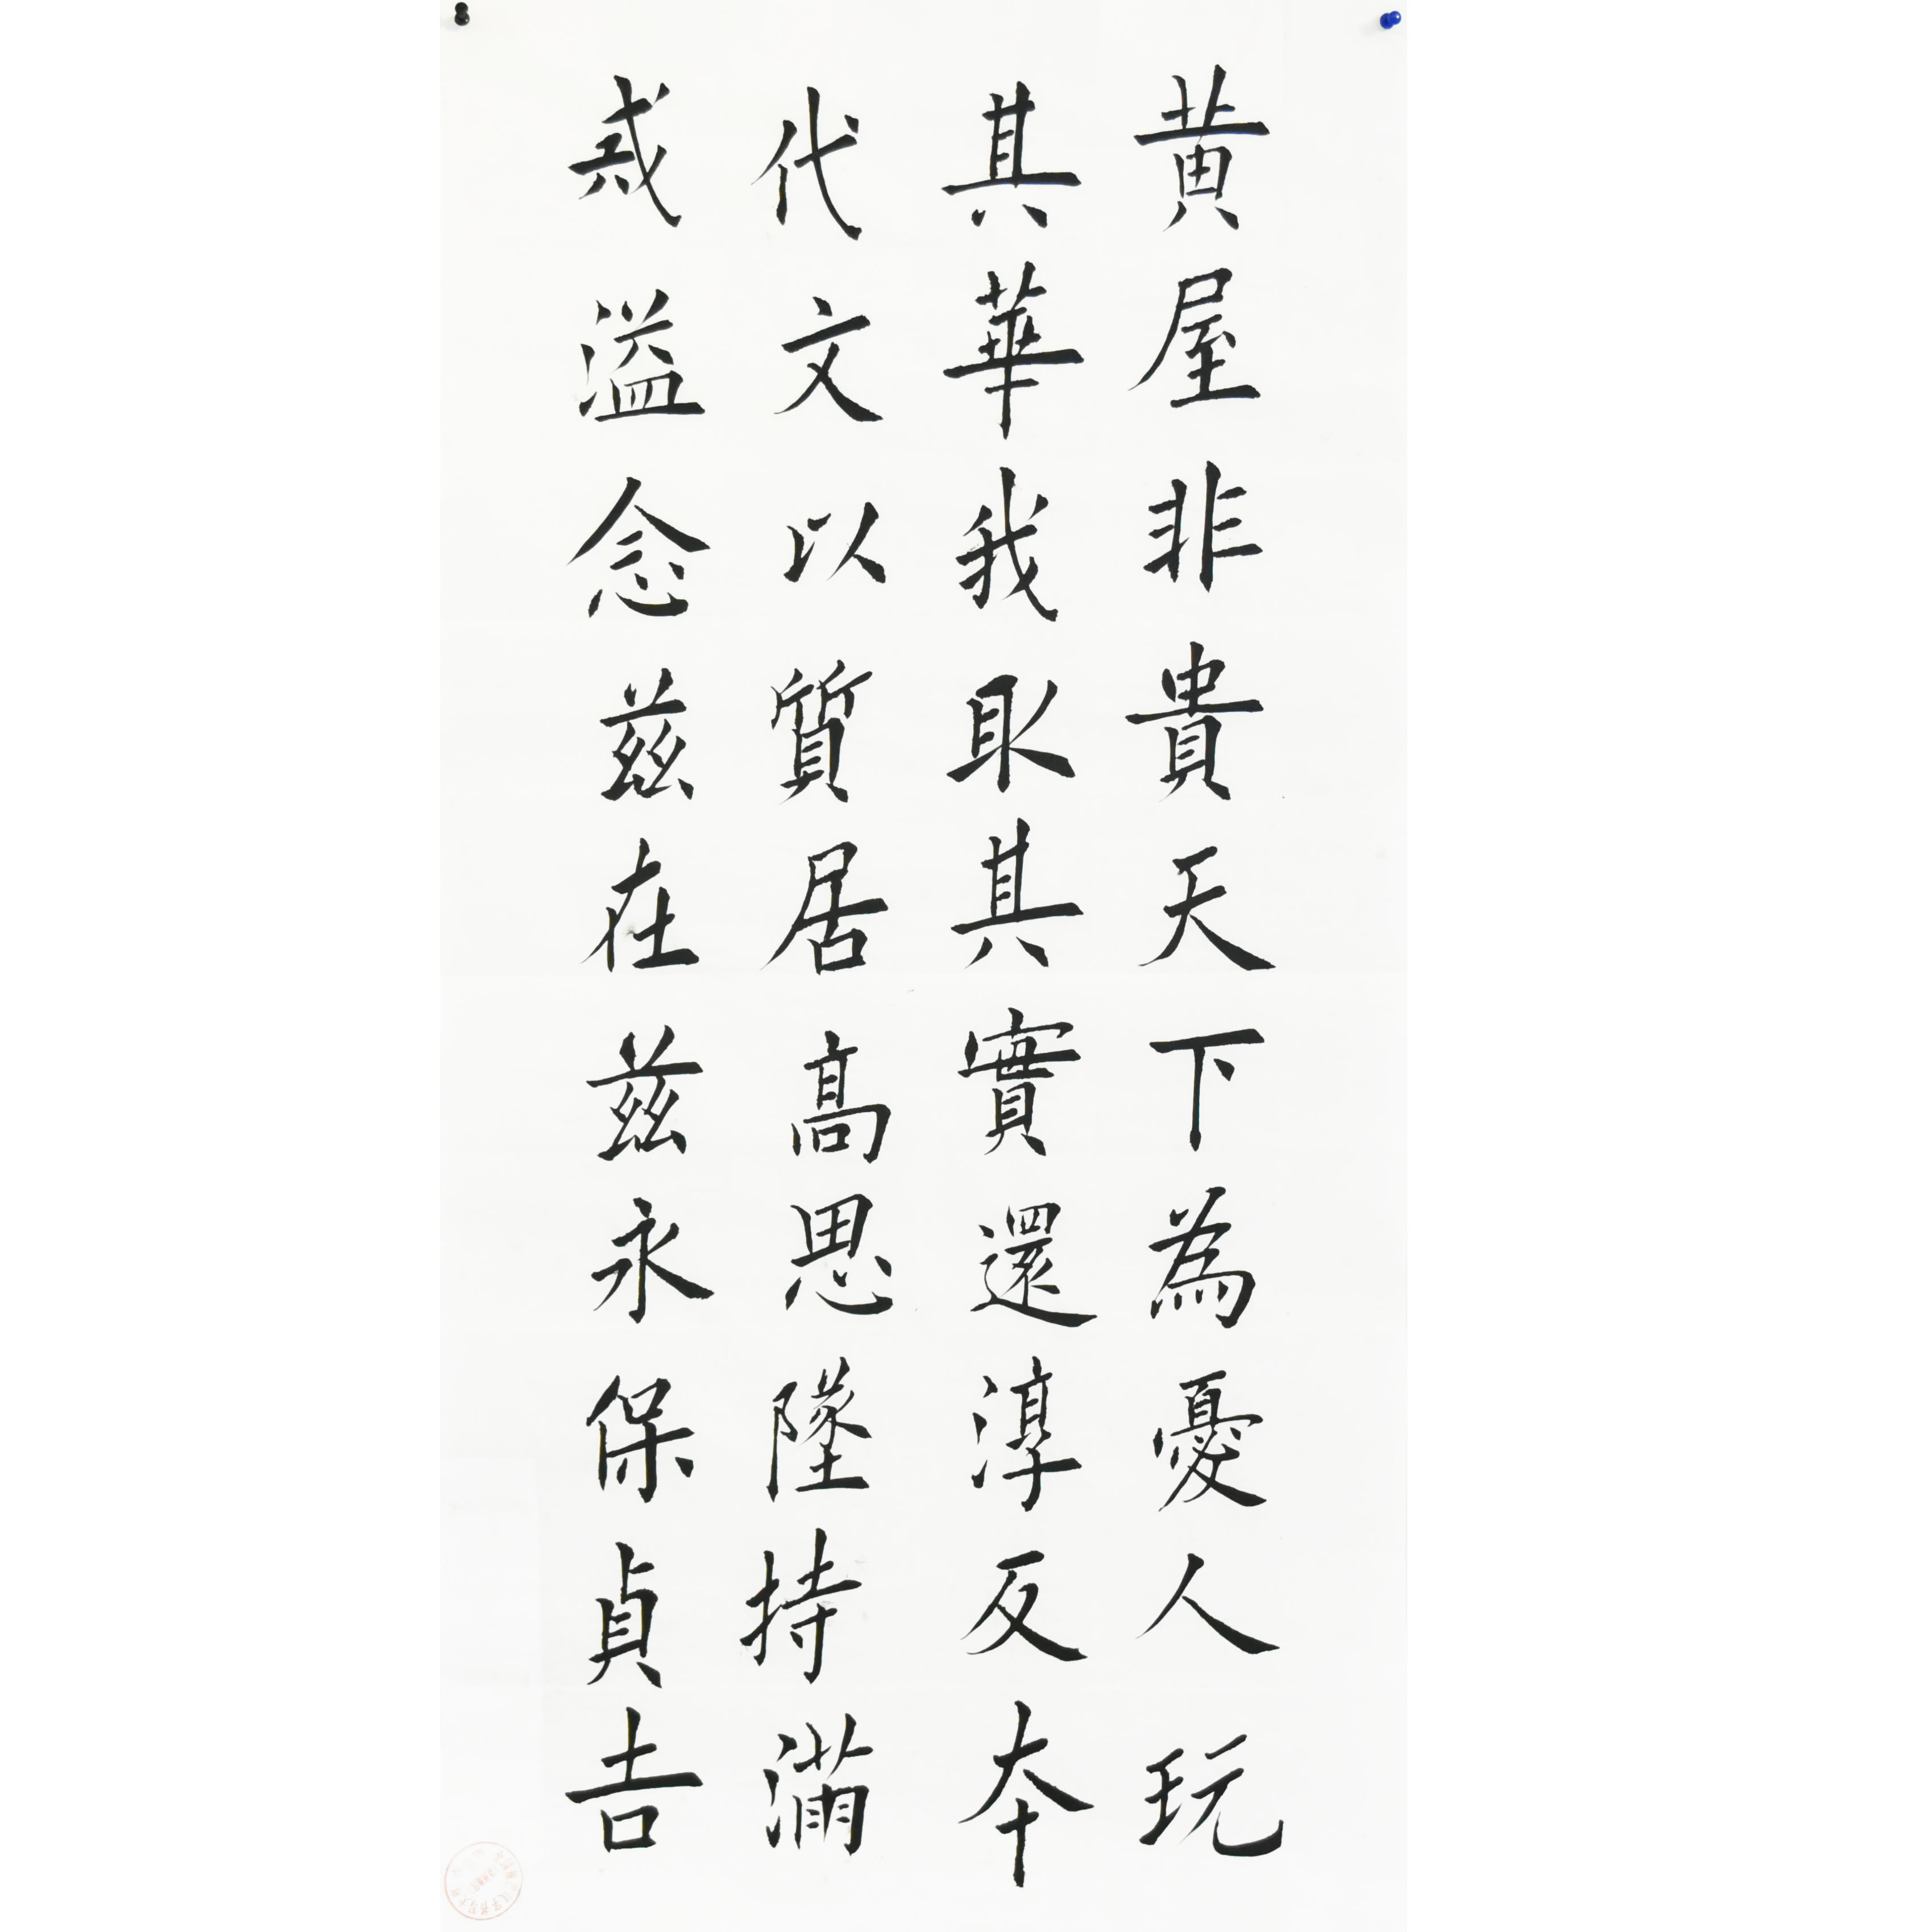 黄屋非貴天下為憂人玩
其華我取其實還淳反本
代文以質居高思墜持滿
戒溢念兹在兹永保貞吉